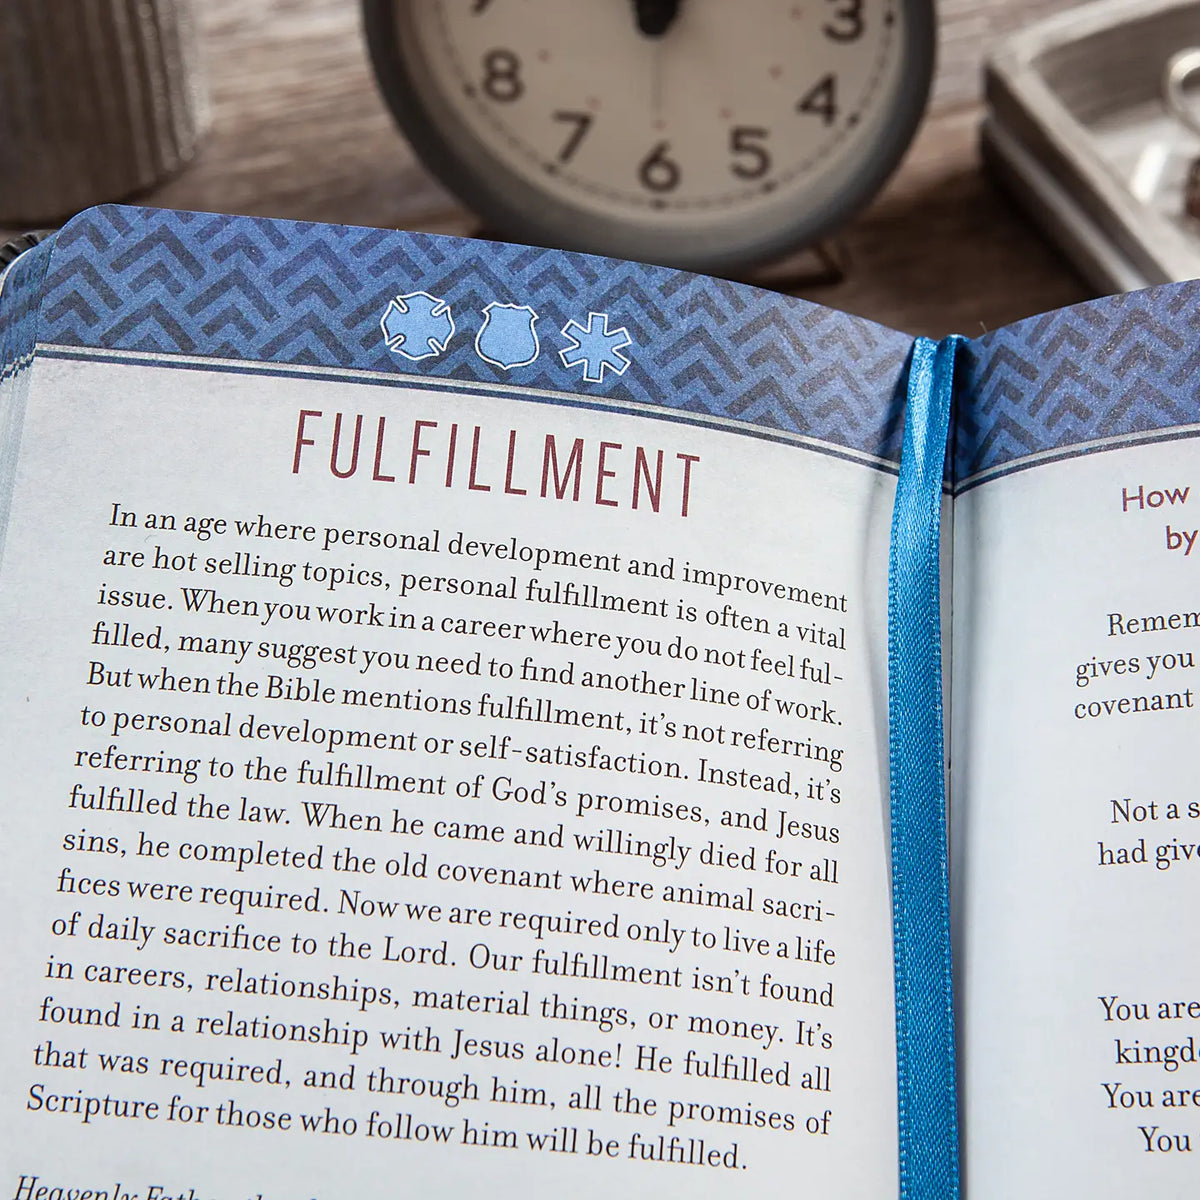 8
7
6
5
4
3
FULFILLMENT
In an age where personal development and improvement
are hot selling topics, personal fulfillment is often a vital
issue. When you work in a career where you do not feel ful-
filled, many suggest you need to find another line of work.
But when the Bible mentions fulfillment, it's not referring
to personal development or self-satisfaction. Instead, it's
referring to the fulfillment of God's promises, and Jesus
fulfilled the law. When he came and willingly died for all
sins, he completed the old covenant where animal sacri-
fices were required. Now we are required only to live a life
of daily sacrifice to the Lord. Our fulfillment isn't found
in careers, relationships, material things, or money. It's
found in a relationship with Jesus alone! He fulfilled all
that was required, and through him, all the promises of
Scripture for those who follow him will be fulfilled.
Heavenly
How
by
Remem
gives you
covenant
Not a s
had give
You are
kingd
You are
You